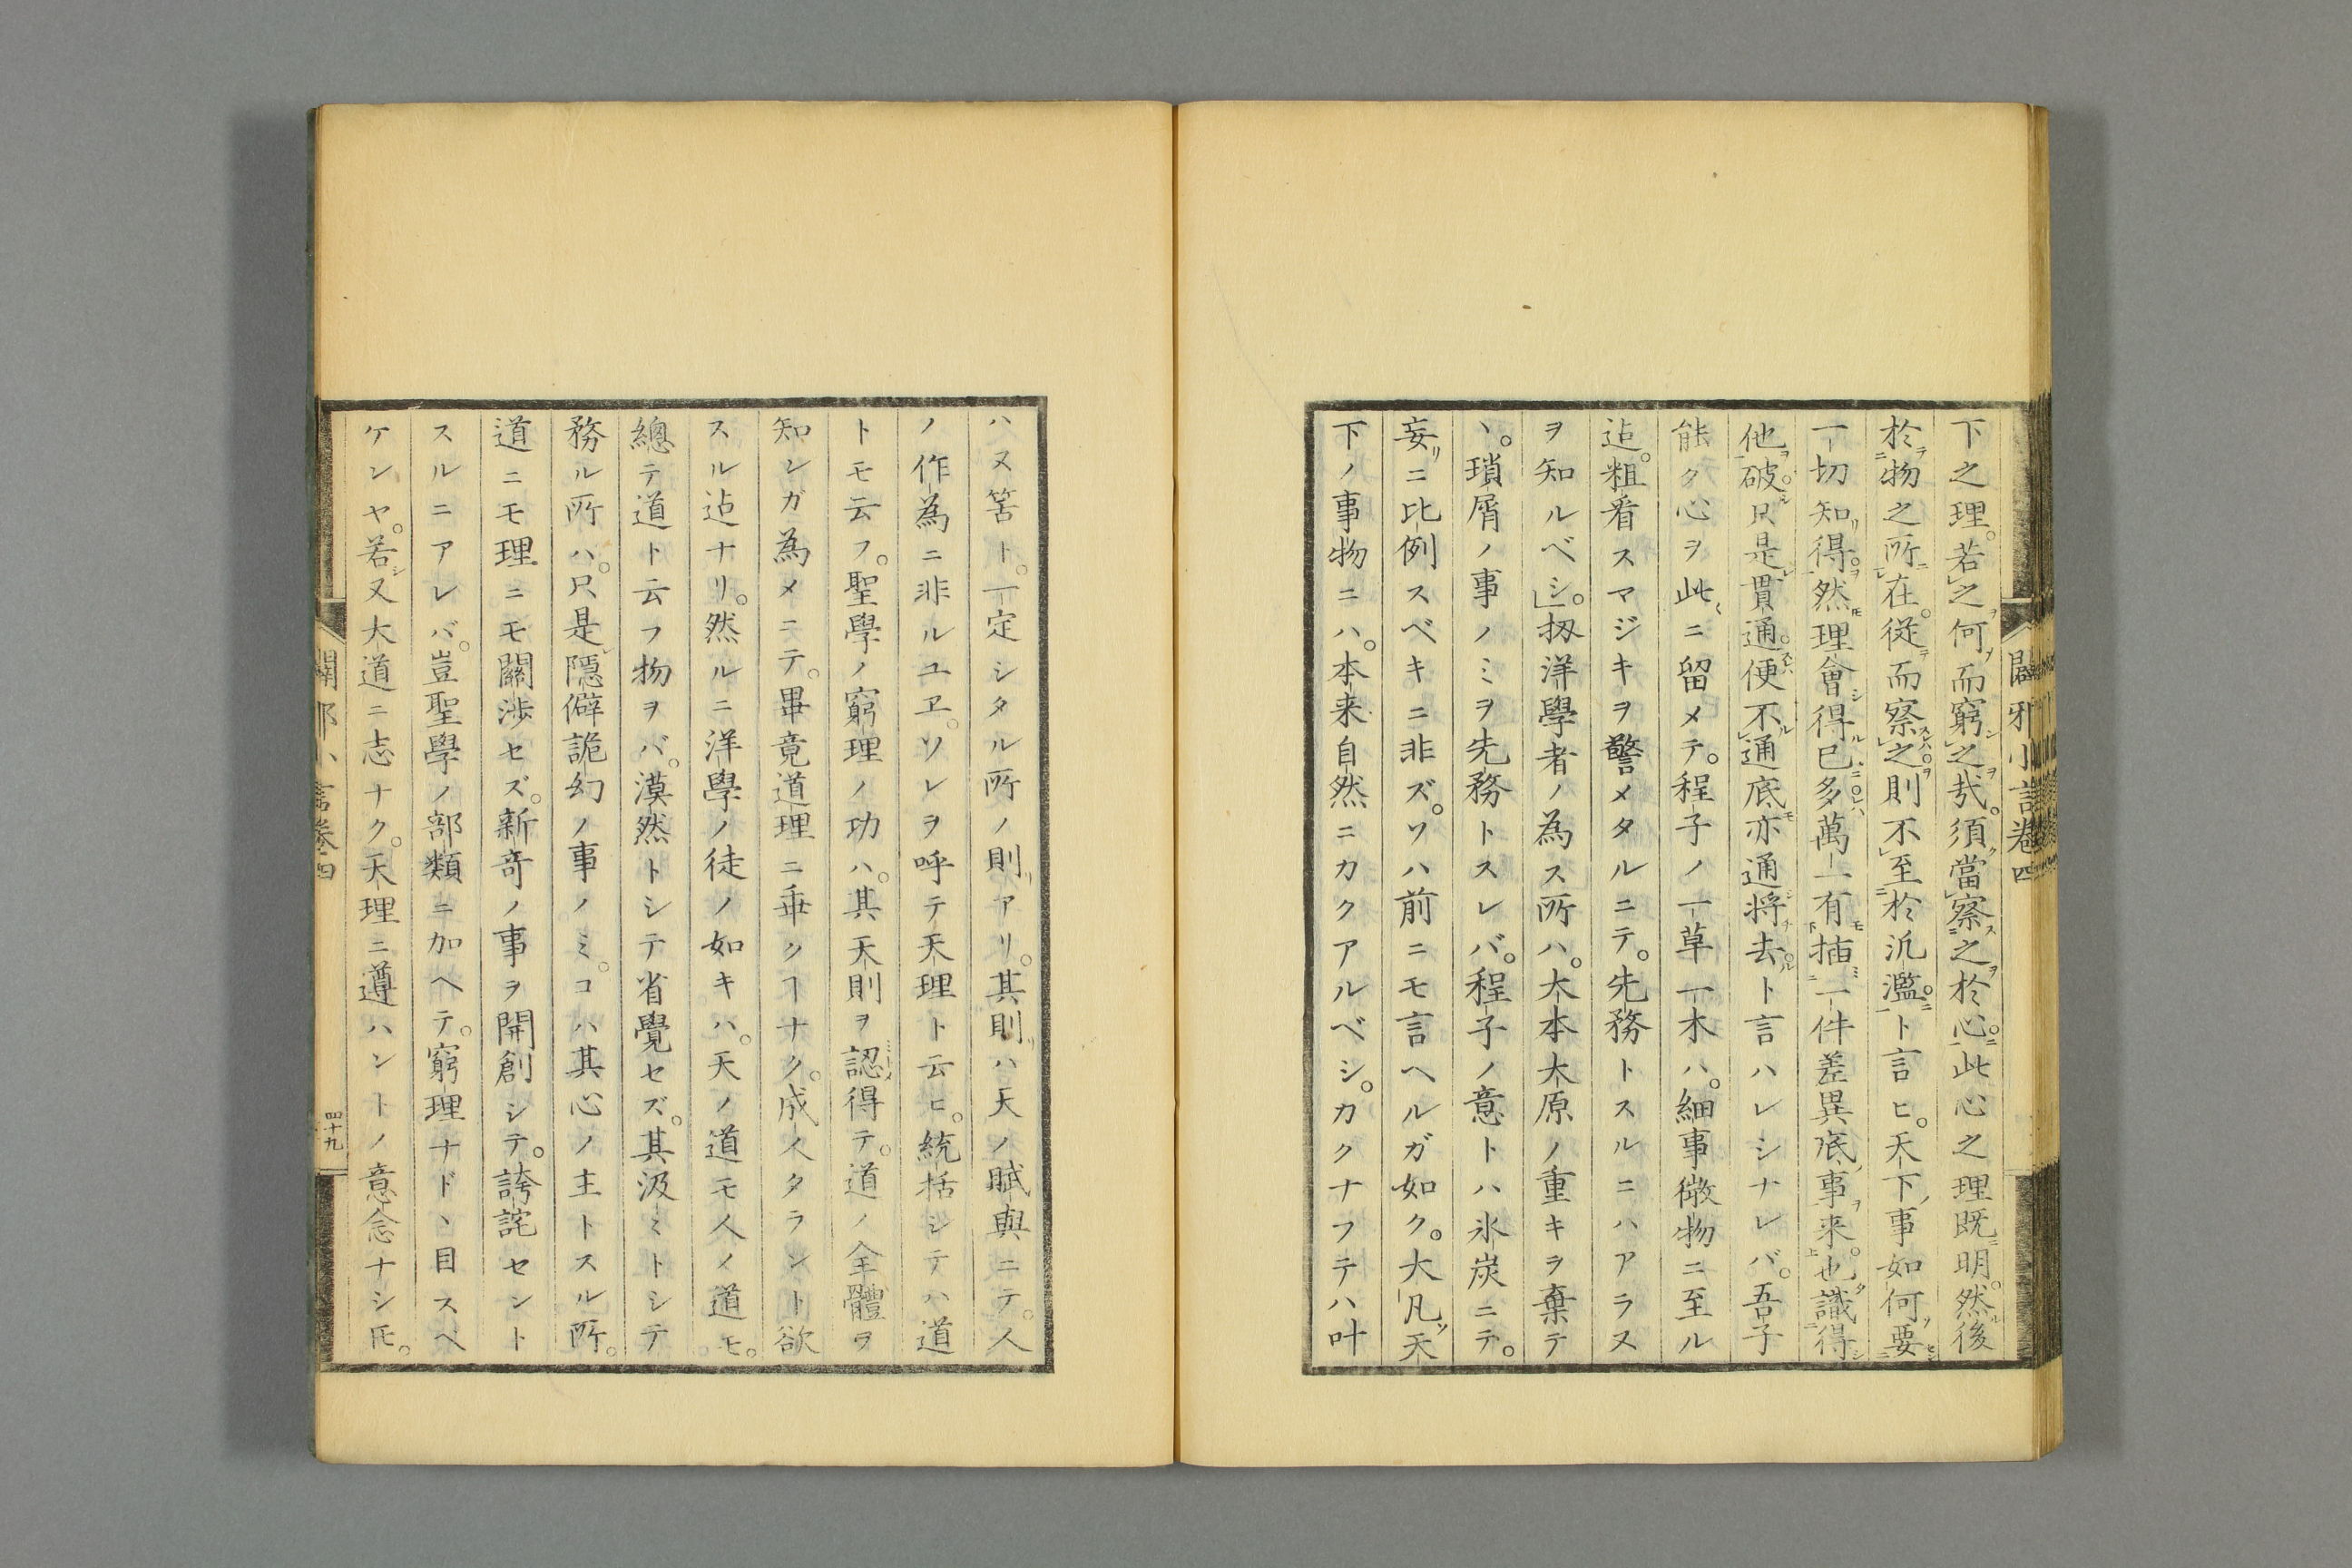 闢邪小言卷四
下之理。若之何而窮之哉。須當察之於心。此心之理既明。然後
於物之所在。從而察之。則不至於汎濫。ト言ヒ。天下事如何要
一切知得。然理會得已多。萬一有插一件差異底事来。也識得
他破。只是貫通。便不通底亦通將去。ト言ハレシナレバ。吾子
能ク心ヲ此ニ留メテ。程子ノ一草一木ハ。細事微物ニ至ル
迠。粗看スマジキヲ警メタルニテ。先務トスルニハアラス
ヲ知ルベシ。扨洋學者ノ為ス所ハ。大本大原ノ重キヲ棄テ
ヽ。瑣屑ノ事ノミヲ先務トスレバ。程子ノ意トハ氷炭ニテ。
妄ニ比例スベキニ非ズ。ソハ前ニモ言ヘルガ如ク。大凡天
下ノ事物ニハ。本来自然ニカクアルベシ。カクナフテハ叶
ハヌ筈ト。一定シタル所ノ則アリ。其則ハ天ノ賦與ニテ。人
ノ作為ニ非ルユヱ。ソレヲ呼テ天理ト云ヒ。統括シテハ道
トモ云フ。聖學ノ窮理ノ功ハ。其天則ヲ認得テ。道ノ全體ヲ
知ンガ為メニテ。畢竟道理ニ乖クヿナク。成人タラント欲
スル迠ナリ。然ルニ洋學ノ徒ノ如キハ。天ノ道モ人ノ道モ。
總テ道ト云フ物ヲバ。漠然トシテ省覺セズ。其汲ミトシテ
務ル所ハ。只是隱僻詭幻ノ事ノミ。コハ其心ノ主トスル所。
道ニモ理ニモ關渉セズ。新奇ノ事ヲ開創シテ。誇詫セント
スルニアレバ。豈聖學ノ部類ニ加ヘテ。窮理ナドヽ目スベ
ケンヤ。若又大道ニ志ナク。天理ニ遵ハントノ意念ナシ𪜈。
闢邪小言卷四
四十九